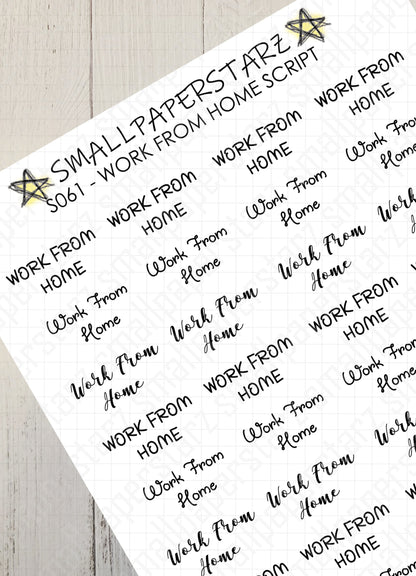 SMALLPAPERSTARZ
S061 - WORK FROM HOME SCRIPT
WORK FROM
HOME
WORK FROM
HOME
WORK FROM
HOME
WORK FROM
HOME
Work From
Home
Work From
Home
Work From
Home
Work From
Home
Work From
Home
Work From
Home
Work From
Home
Work
WORK FROM
HOME
WORK FROM
HOME
WORK FROM
HOME
Work From
Home
Work From
Home
Work
Home
Work From
Home
Work From
Home
Work
WORK FROM
HOME